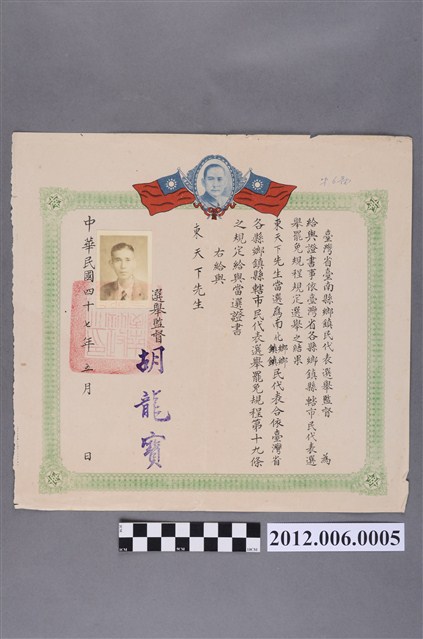 臺灣省臺南縣鄉鎮民代表選舉監督 為
給與證書事依臺灣省各縣鄉鎮縣轄市民代表選
舉罷免規程規定選舉之結果
東天下先生當選為南化鄉鎮民代表合依臺灣省
各縣鄉鎮縣轄市民代表選舉罷免規程第十九條
之規定給與當選證書
右給與
東天下先生
選舉監督 胡龍寶
中華民國四十七年五月 日
2012.006.0005